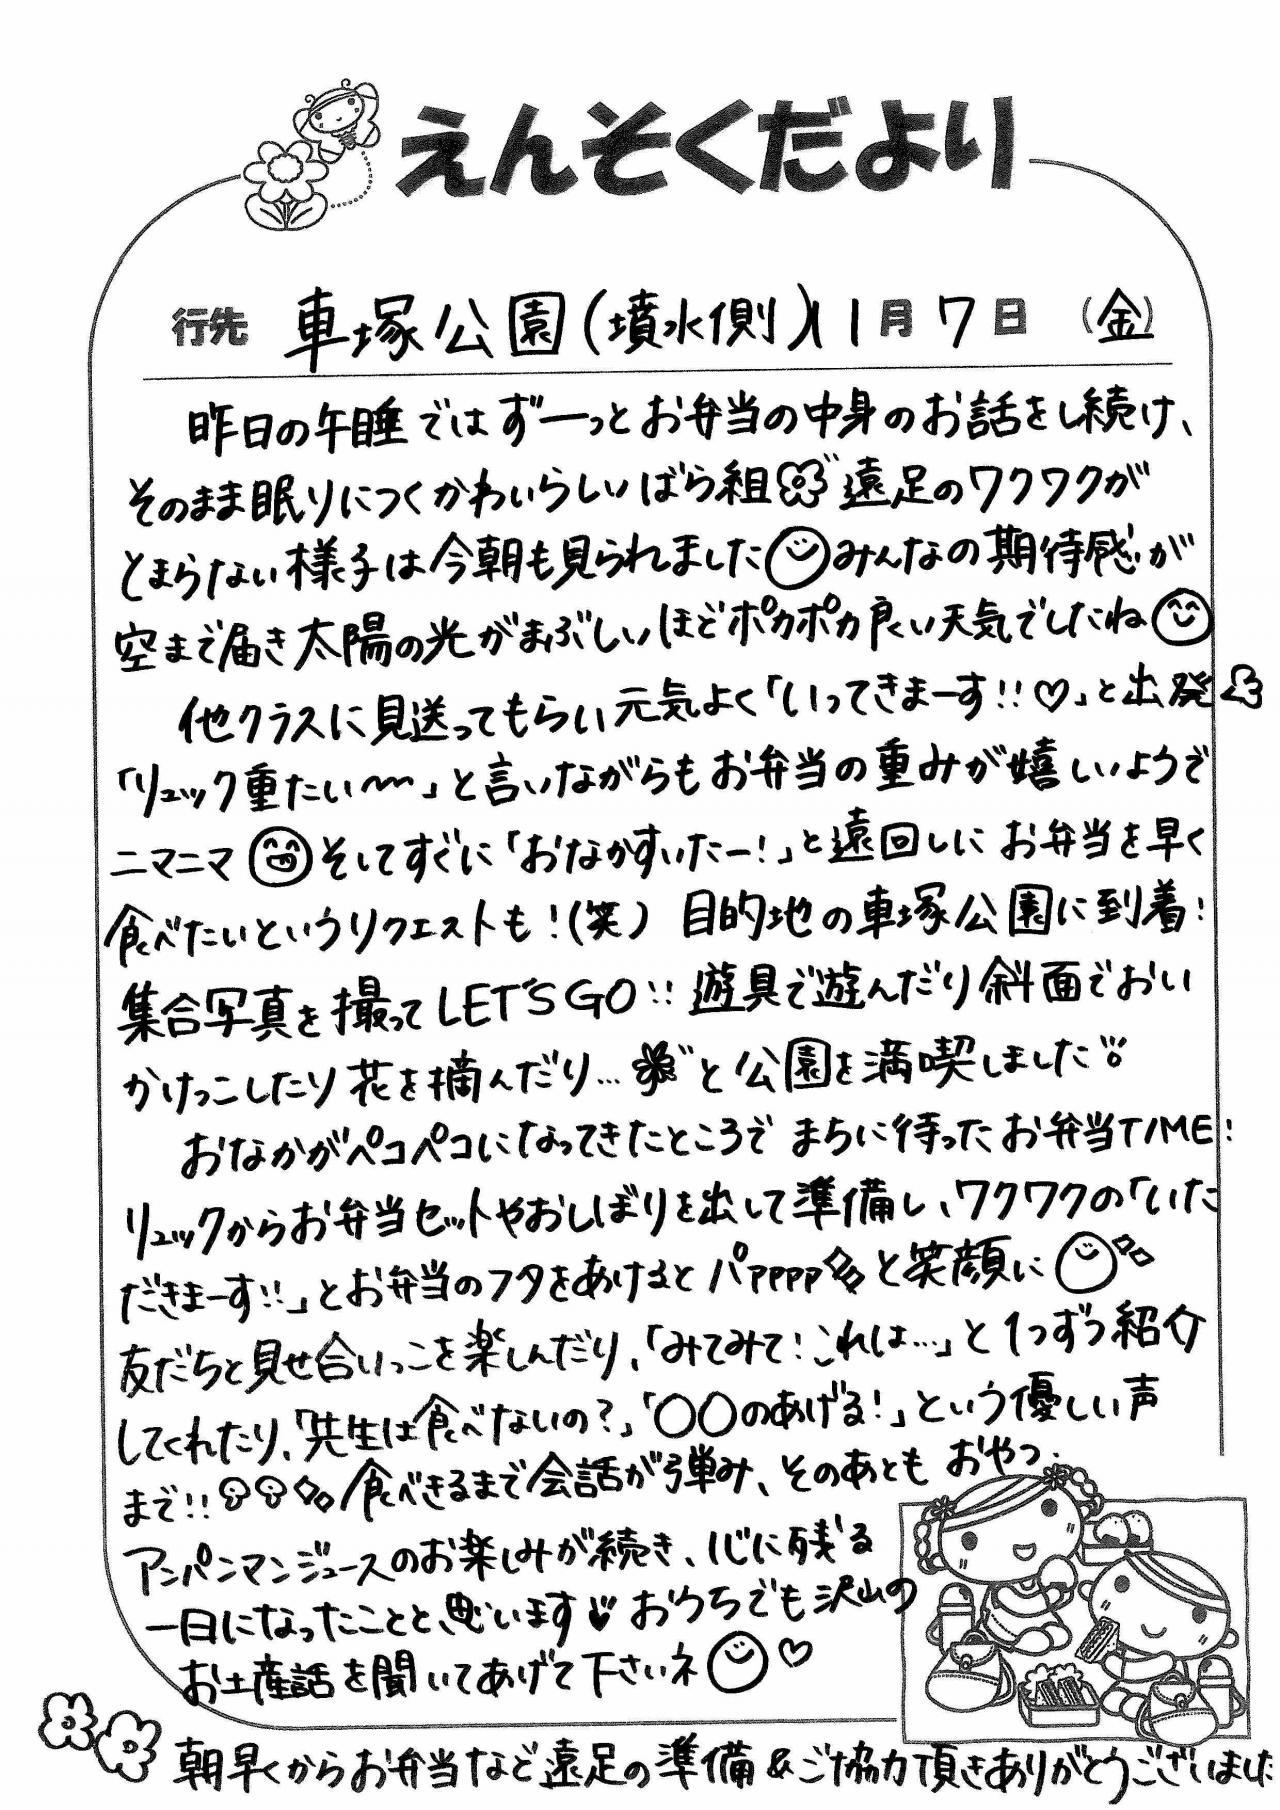 えんそくだより
行先 車塚公園(墳水側)11月7日(金)
昨日の午睡ではずーっとお弁当の中身のお話をし続け、
そのまま眠りにつくかわいらしいばら組 遠足のワクワクが
とまらない様子は今朝も見られました みんなの期待感が
空まで届き太陽の光がまぶしいほどポカポカ良い天気でしたね
他クラスに見送ってもらい元気よく「いってきまーす!!♡」と出発
「リュック重たい〜〜」と言いながらもお弁当の重みが嬉しいようで
ニマニマ そしてすぐに「おなかすいたー!」と遠回しにお弁当を早く
食べたいというリクエストも!(笑) 目的地の車塚公園に到着!
集合写真を撮ってLET'S GO!! 遊具で遊んだり斜面でおい
かけっこしたり花を摘んだり… と公園を満喫しました
おなかがペコペコになってきたところで まちに待ったお弁当TIME!
リュックからお弁当セットやおしぼりを出して準備し、ワクワクの「いた
だきまーす!!」とお弁当のフタをあけるとパァァァァと笑顔に
友だちと見せ合いっこを楽しんだり、「みてみて!これは…」と1つずつ紹介
してくれたり、「先生は食べないの?」「〇〇のあげる!」という優しい声
まで!! 食べきるまで会話が弾み、そのあともおやつ、
アンパンマンジュースのお楽しみが続き、心に残る
一日になったことと、思います♥ おうちでも沢山の
お土産話を聞いてあげて下さいネ ♡
朝早くからお弁当など遠足の準備&ご協力頂きありがとうございました